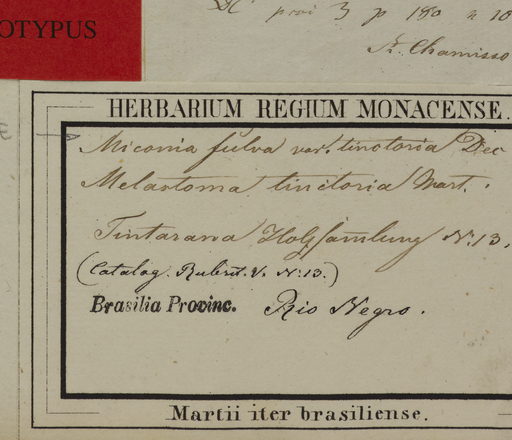 OTYPUS
DC prov 3 p 180 n 10
A. Chamisso
HERBARIUM REGIUM MONACENSE.
Miconia fulva var. tinctoria Dec
Melastoma tinctoria Mart.
Tintarana Holzsam̄lung N. 13.
(Catalog. Rubrit. V. N. 13.)
Brasilia Provinc. Rio Negro.
Martii iter brasiliense.